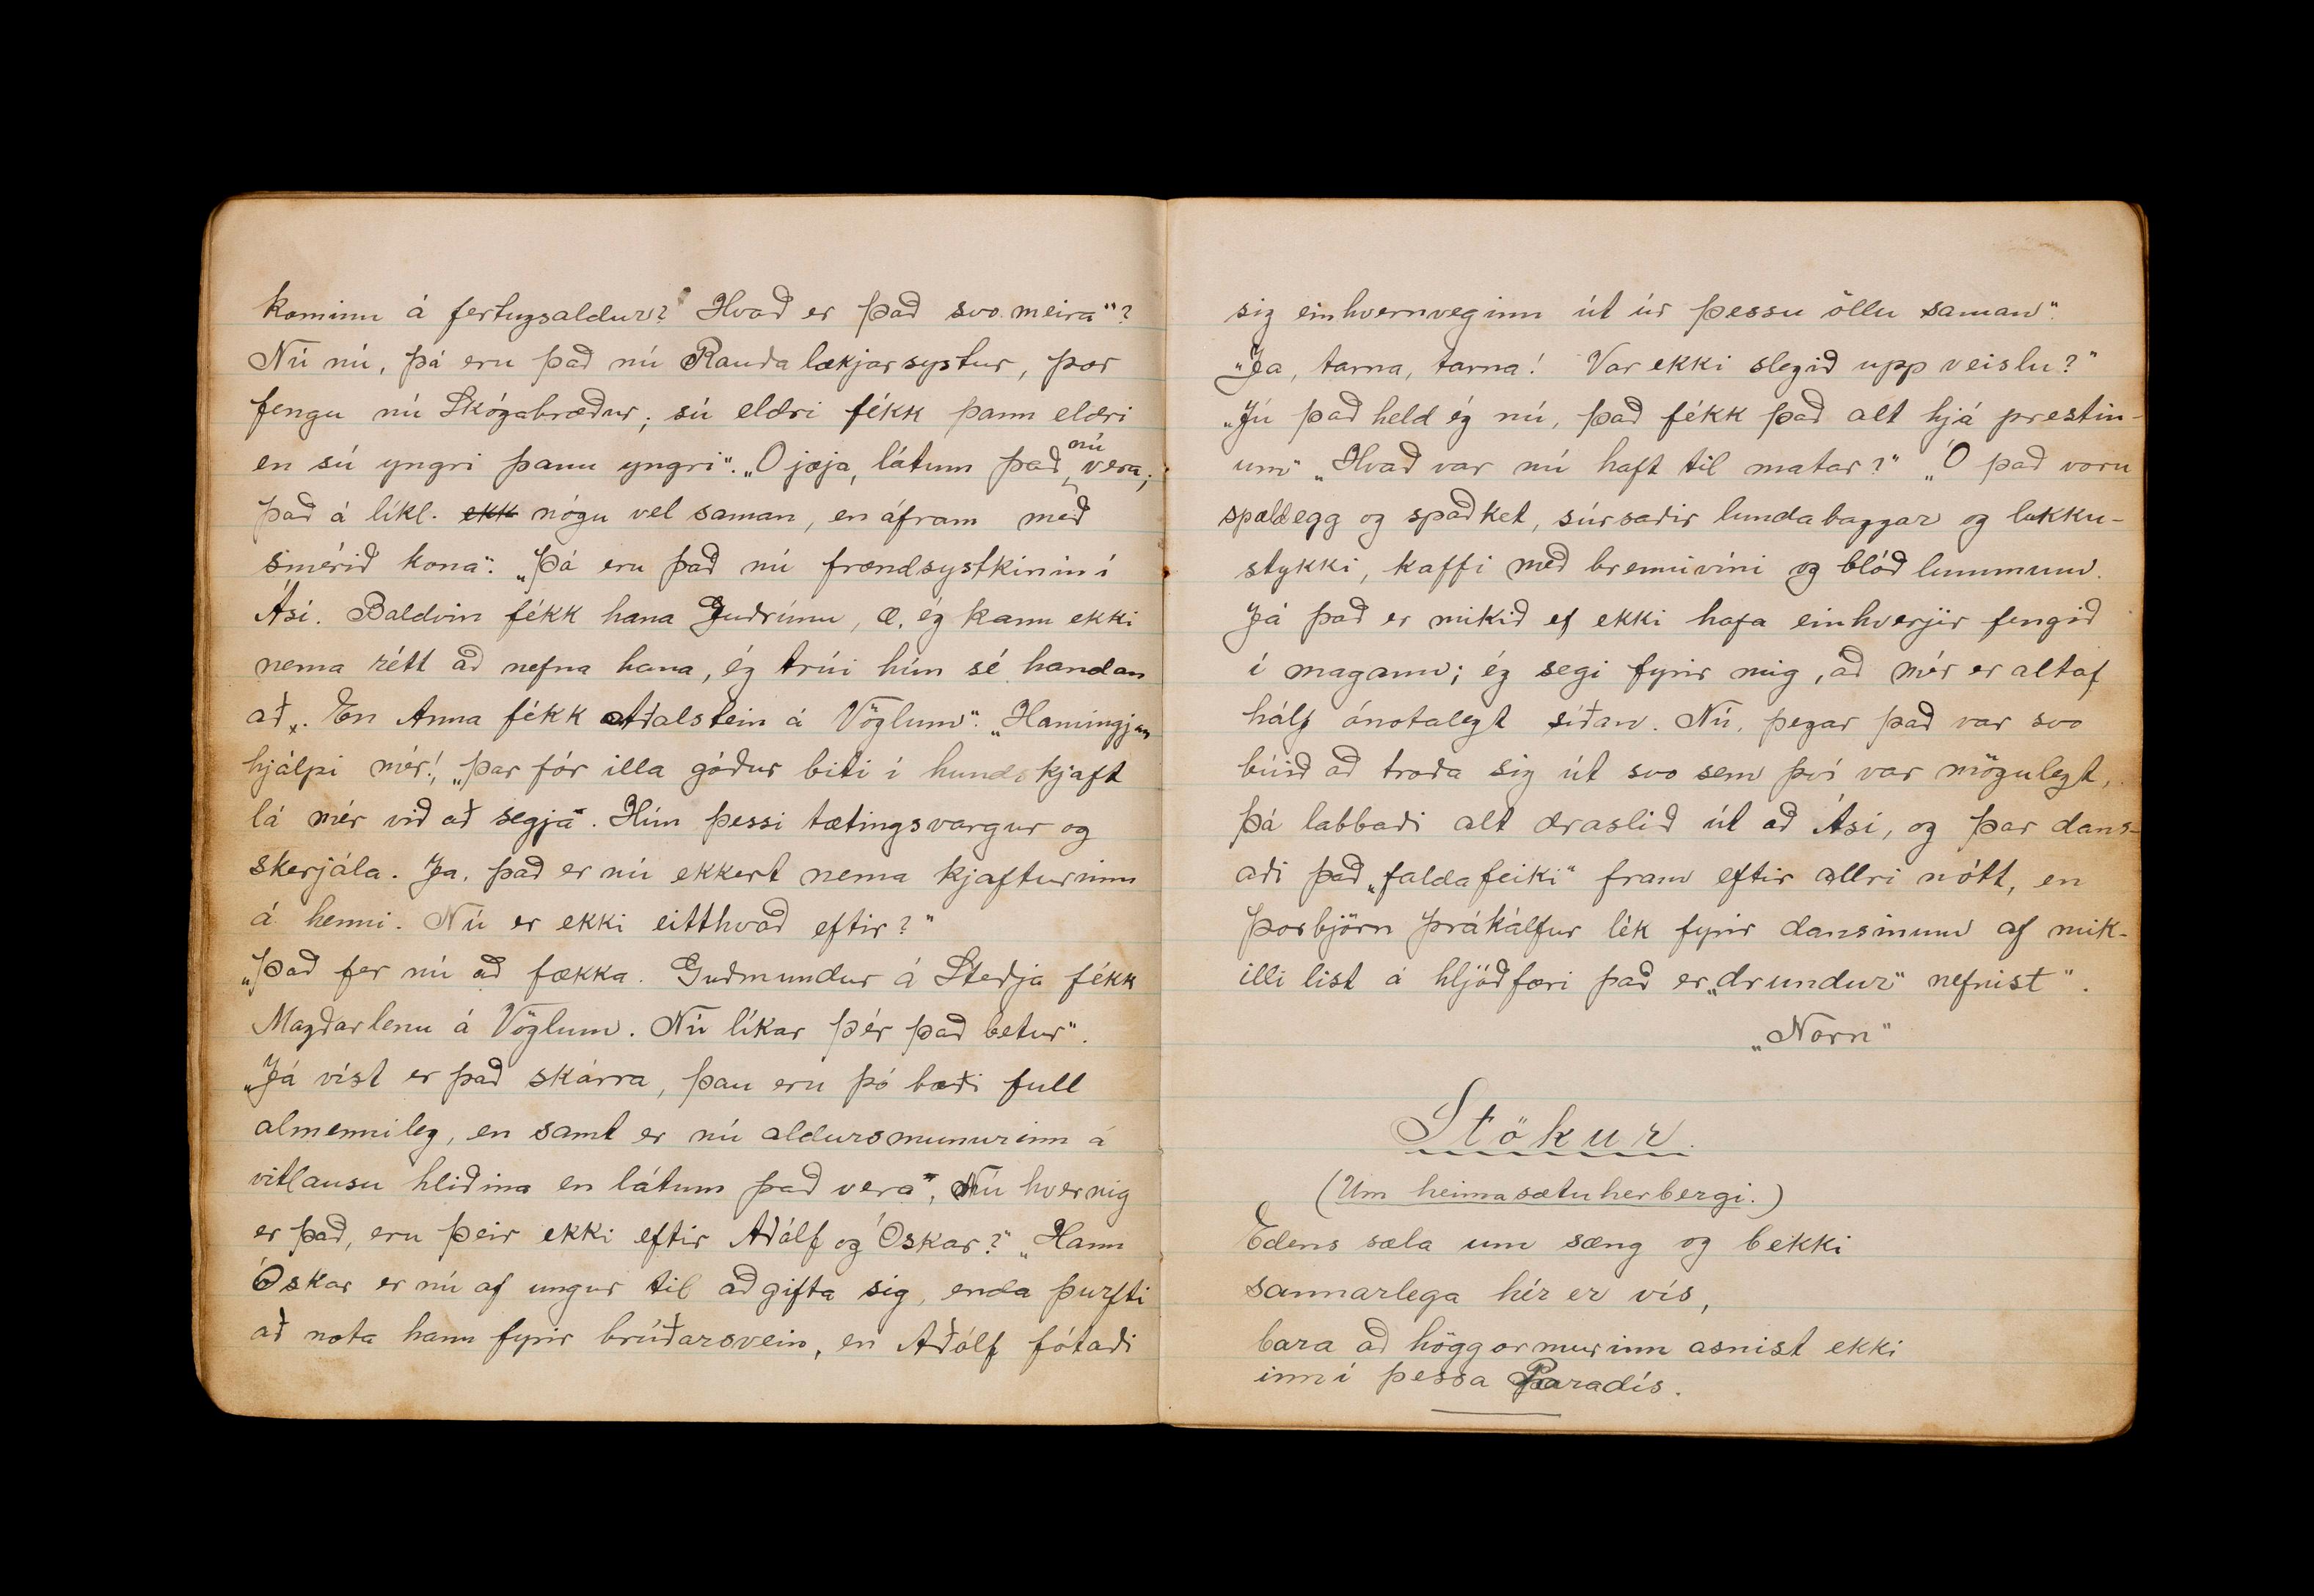 kominn á fertugsaldur? Hvað er það svo meira"?
Nú nú, þá eru það nú Rauðalækjarsystur, þær
fengu nú Skógabræður; sú eldri fékk þann eldri
en sú yngri þann yngri". „O jæja, látum það nú vera;
það á líkl. ekk nógu vel saman, en áfram með
smérið kona". „Þá eru það nú frændsystkinin í
Ási. Baldvin fékk hana Guðrúnu, æ, ég kann ekki
nema rétt að nefna hana, ég trúi hún sé handan
að. En Anna fékk Aðalstein á Vöglum". „Hamingjan
hjálpi mér!, „þar fór illa góður biti í hundskjaft
lá mér við að segja". Hún þessi tætingsvargur og
skerjála. Ja, það er nú ekkert nema kjafturinn
á henni. Nú er ekki eitthvað eftir?"
„Það fer nú að fækka. Guðmundur á Steðja fékk
Magðarlenu á Vöglum. Nú líkar þér það betur".
„Já víst er það skárra, þau eru þó bæði full
almennileg, en samt er nú aldursmunurinn á
vitlausu hliðina en látum það vera", Nú hvernig
er það, eru þeir ekki eftir Aðólf og Óskar?" „Hann
Óskar er nú of ungur til að gifta sig, enda þurfti
að nota hann fyrir brúðarsvein, en Aðólf fótaði
sig einhvernveginn út úr þessu öllu saman".
„Ja, tarna, tarna! Var ekki slegið upp veislu?"
„Jú það held ég nú, það fékk það alt hjá prestin-
um" „Hvað var nú haft til matar?" „Ó það voru
spældegg og spaðket, súrsaðir lundabaggar og lukku-
stykki, kaffi með brennivíni og blóðlummum.
Já það er mikið ef ekki hafa einhverjir fengið
í magann; ég segi fyrir mig, að mér er altaf
hálf ónotalegt síðan. Nú, þegar það var svo
búið að troða sig út svo sem því var mögulegt,
þá labbaði alt draslið út að Ási, og þar dans-
aði það „faldafeiki" fram eftir allri nótt, en
Þorbjörn þrákálfur lék fyrir dansinum af mik-
illi list á hljóðfæri það er „drundur" nefnist".
„Norn"
Stökur.
(Um heimasætuherbergi.)
Edens sæla um sæng og bekki
sannarlega hér er vís,
bara að höggormurinn asnist ekki
inn í þessa Paradís.